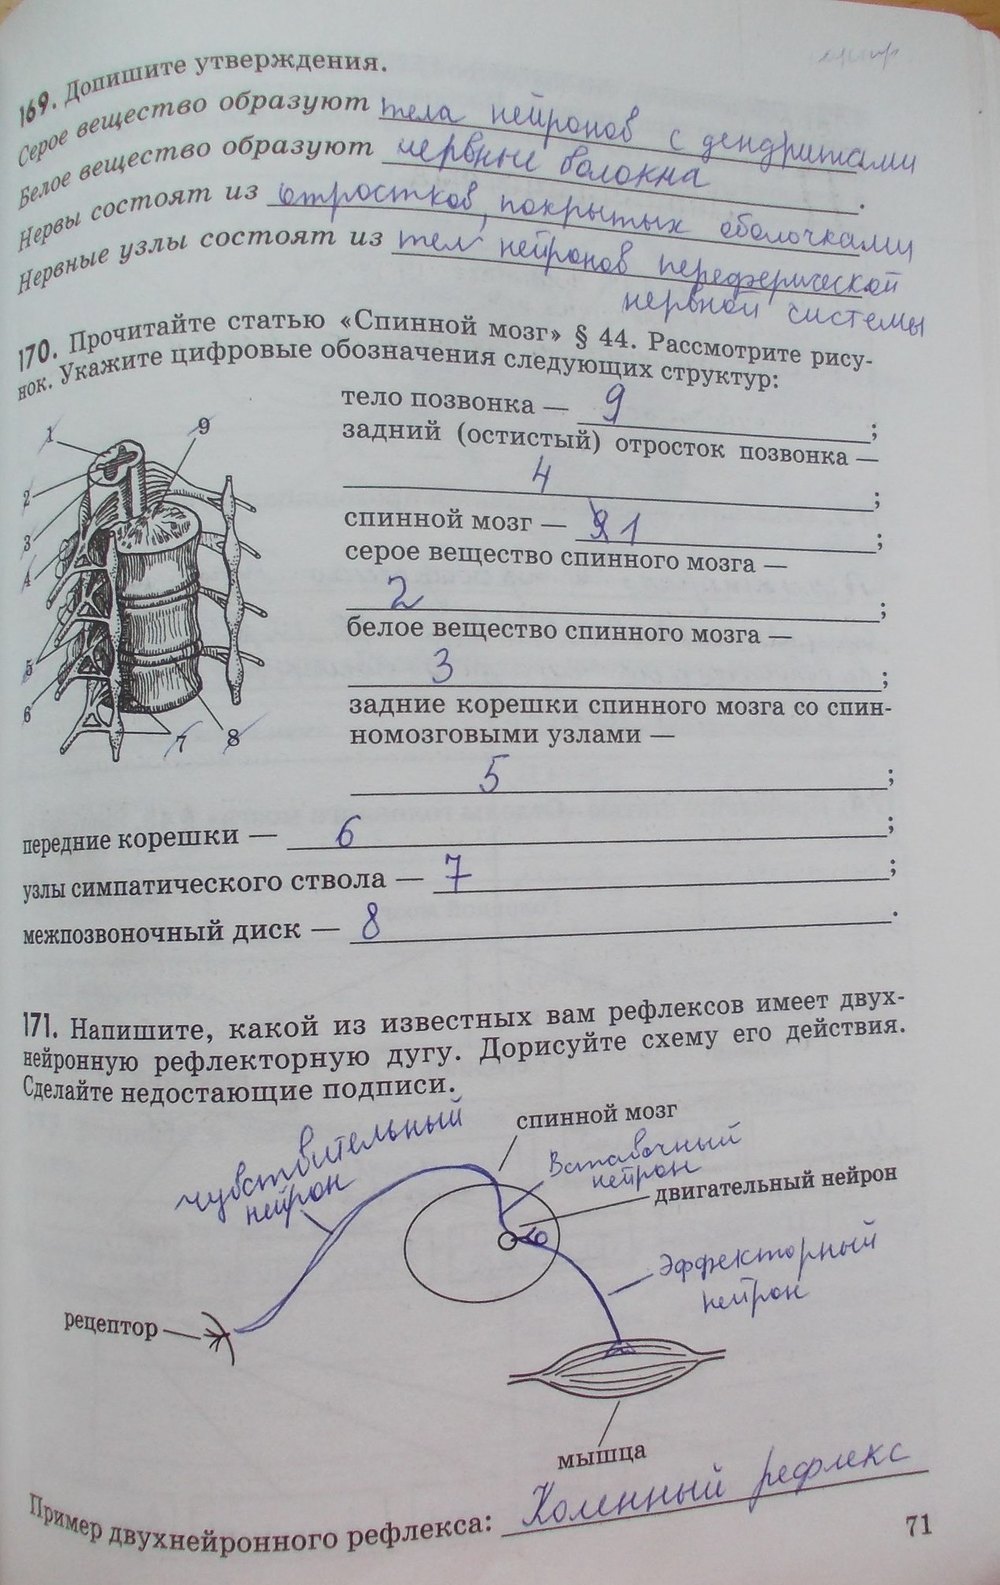 169. Допишите утверждения.
Серое вещество образуют тела нейронов с дендритами
Белое вещество образуют нервные волокна.
Нервы состоят из отростков, покрытых оболочками
Нервные узлы состоят из тел нейронов переферической
нервной системы
170. Прочитайте статью «Спинной мозг» § 44. Рассмотрите рису-
нок. Укажите цифровые обозначения следующих структур:
тело позвонка — 9;
задний (остистый) отросток позвонка —
4;
спинной мозг — 1;
серое вещество спинного мозга —
2;
белое вещество спинного мозга —
3;
задние корешки спинного мозга со спин-
номозговыми узлами —
5;
1
9
2
3
4
5
6
7
8
передние корешки — 6;
узлы симпатического ствола — 7;
межпозвоночный диск — 8.
171. Напишите, какой из известных вам рефлексов имеет двух-
нейронную рефлекторную дугу. Дорисуйте схему его действия.
Сделайте недостающие подписи.
чувствительный
нейрон
спинной мозг
Вставочный
нейрон
двигательный нейрон
Эффекторный
нейрон
рецептор
мышца
Пример двухнейронного рефлекса: Коленный рефлекс
71